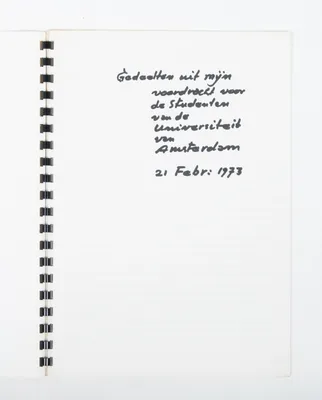 Gedeelten uit mijn
voordracht voor
de Studenten
van de
Universiteit
van
Amsterdam
21 Febr: 1973